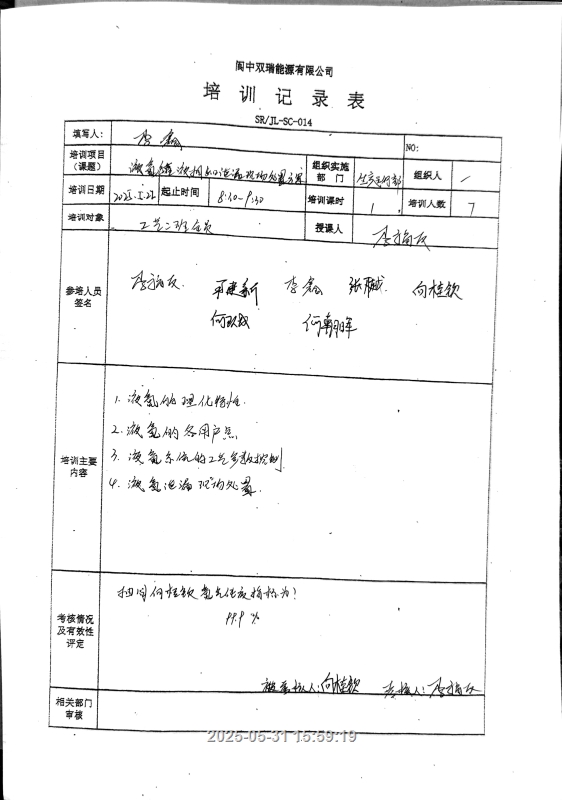 阆中双瑞能源有限公司
培 训 记 录 表
SR/JL-SC-014
填写人： 李鑫 NO:
培训项目（课题） 液氨 泄漏现场处置方案 组织实施部门 生产运行部 组织人 /
培训日期 2025.5.22 起止时间 8:30-9:30 培训课时 1 培训人数 7
培训对象 工艺二班全员 授课人
参培人员签名 李鑫 张 何桂钦
何
培训主要内容
1. 液氨的理化特性.
2. 液氨的各用户点.
3. 液氨系统的工艺参数控制
4. 液氨泄漏现场处置.
考核情况及有效性评定
抽问何桂钦 指标为？
99.9 %
被考核人：何桂钦 考核人：
相关部门审核
2025-05-31 15:59:19